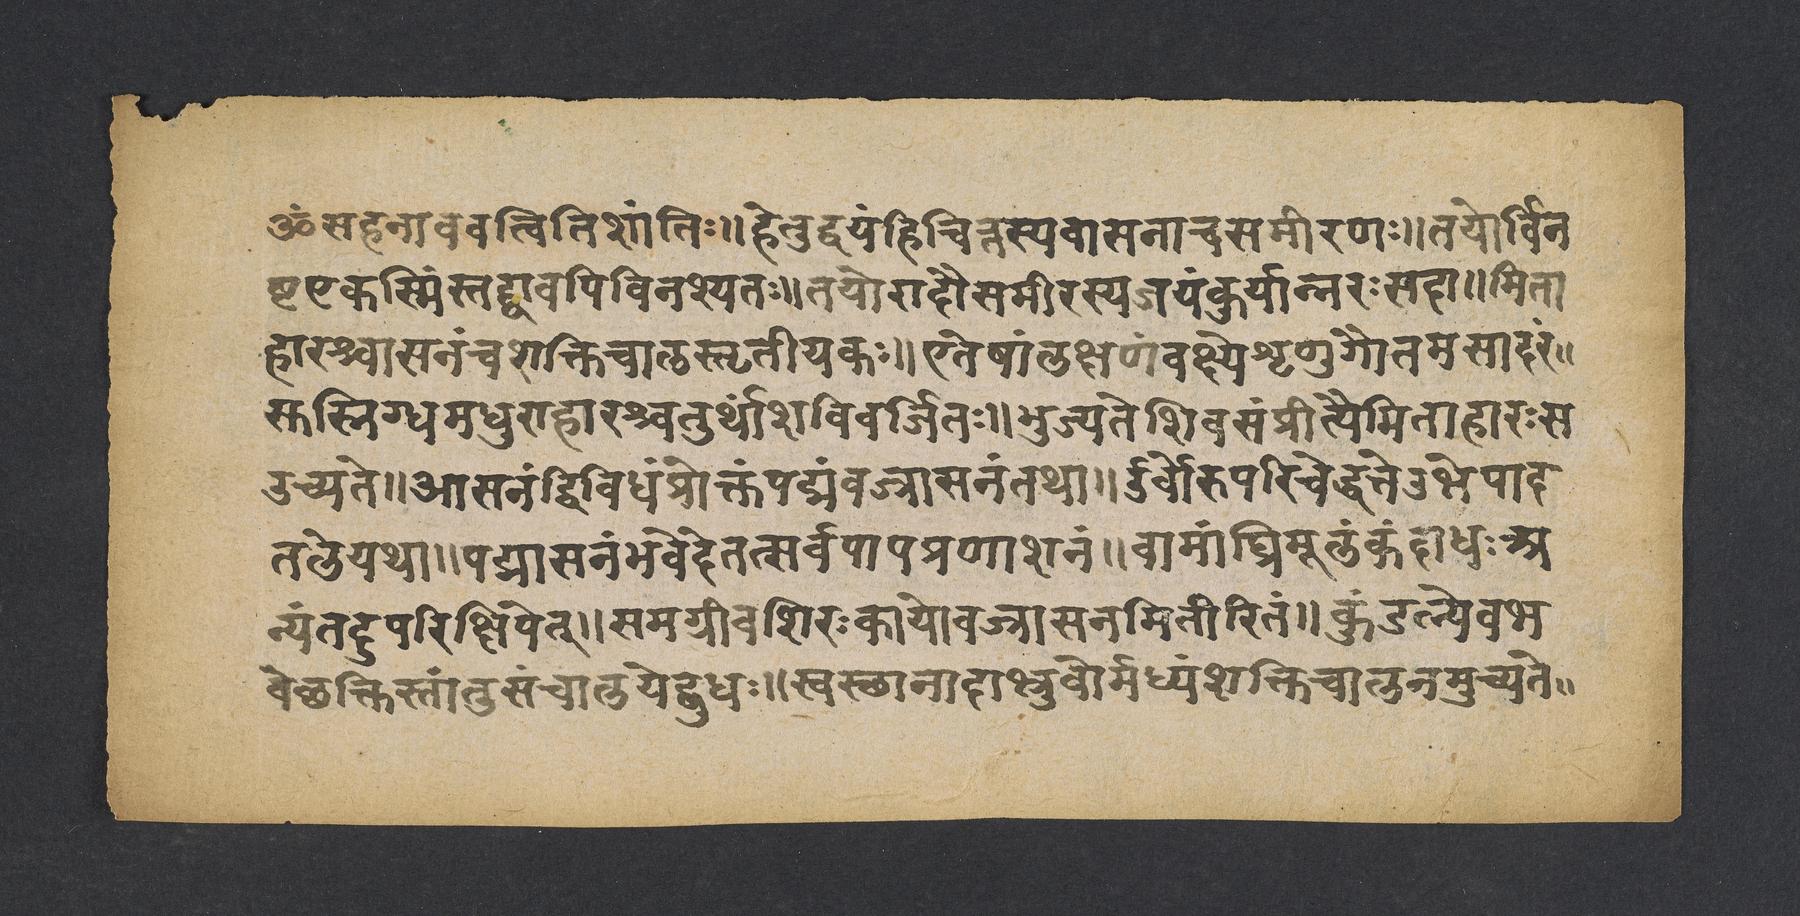 ॐसहनाववत्वितिशांतिः॥हेतुद्वयंहिचित्तस्यवासनाचसमीरणः॥तयोर्विन
ष्टएकस्मिंस्तद्द्वावपिविनश्यतः॥तयोरादौसमीरस्यजयंकुर्यान्नरःसदा॥मिता
हारश्चासनंचशक्तिचालस्तृतीयकः॥एतेषांलक्षणंवक्ष्येशृणुगौतमसादरं॥
सुस्निग्धमधुराहारश्चतुर्थांशविवर्जितः॥भुज्यतेशिवसंप्रीत्यैमिताहारःस
उच्यते॥आसनंद्विविधंप्रोक्तंपद्मंवज्रासनंतथा॥ऊर्वोरुपरिचेद्धत्तेउभेपाद
तलेयथा॥पद्मासनंभवेदेतत्सर्वपापप्रणाशनं॥वामांघ्रिमूलंकंदाधःअ
न्यंतदुपरिक्षिपेत्॥समग्रीवशिरःकायोवज्रासनमितीरितं॥कुंडल्येवभ
वेछक्तिस्तांतुसंचालयेद्बुधः॥स्वस्थानादाभ्रुवोर्मध्यंशक्तिचालनमुच्यते॥